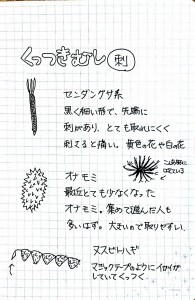 くっつきむし 刺
センダングサ系
黒く細い形で、先端に
刺があり、とても取れにくく
刺さると痛い。黄色の花や白の花
こんな形に
はえている
オナモミ
最近とても少なくなった
オナモミ。集めて遊んだ人も
多いはず。大きいので取りやすい。
ヌスビトハギ
マジックテープのようにイガイガ
していてくっつく